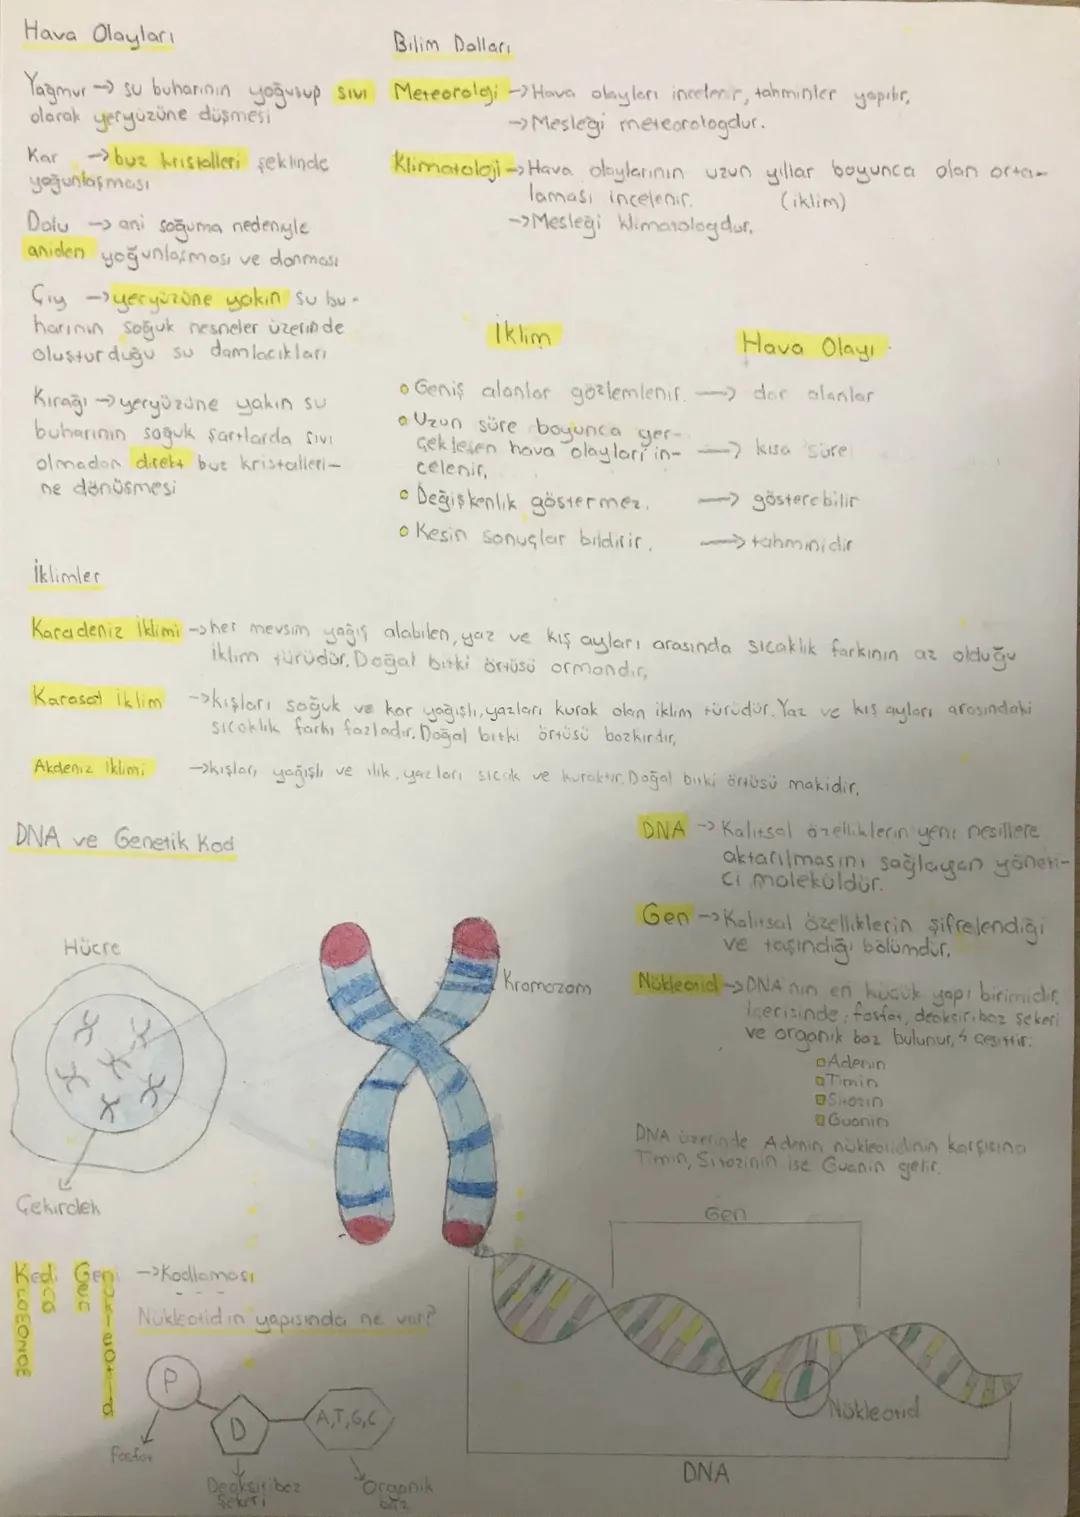 Hava Olayları
Yağmur → su buharının yoğuşup sıvı
olarak yeryüzüne düşmesi
Kar → buz kristalleri şeklinde
yoğunlaşması
Dolu → ani soğuma nedeniyle
aniden yoğunlaşması ve donması
Çiy → yeryüzüne yakın su bu-
harının soğuk nesneler üzerinde
oluşturduğu su damlacıkları
Kırağı → yeryüzüne yakın su
buharının soğuk şartlarda sıvı
olmadan direkt buz kristalleri-
ne dönüşmesi
Bilim Dalları
Meteoroloji → Hava olayları incelenir, tahminler yapılır.
→ Mesleği meteorologdur.
Klimatoloji → Hava olaylarının uzun yıllar boyunca olan orta-
laması incelenir. (iklim)
→ Mesleği klimatologdur.
İklim Hava Olayı
Geniş alanlar gözlemlenir. → dar alanlar
Uzun süre boyunca ger-
çekleşen hava olayları in- → kısa süre
celenir.
Değişkenlik göstermez. → gösterebilir
Kesin sonuçlar bildirir. → tahminidir
İklimler
Karadeniz İklimi → her mevsim yağış alabilen, yaz ve kış ayları arasında sıcaklık farkının az olduğu
iklim türüdür. Doğal bitki örtüsü ormandır.
Karasal İklim → kışları soğuk ve kar yağışlı, yazları kurak olan iklim türüdür. Yaz ve kış ayları arasındaki
sıcaklık farkı fazladır. Doğal bitki örtüsü bozkırdır.
Akdeniz İklimi → kışları yağışlı ve ılık, yazları sıcak ve kuraktır. Doğal bitki örtüsü makidir.
DNA ve Genetik Kod
Hücre
Çekirdek
Kromozom
DNA → Kalıtsal özelliklerin yeni nesillere
aktarılmasını sağlayan yöneti-
ci moleküldür.
Gen → Kalıtsal özelliklerin şifrelendiği
ve taşındığı bölümdür.
Nükleotid → DNA'nın en küçük yapı birimidir.
İçerisinde; fosfat, deoksiriboz şekeri
ve organik baz bulunur, 4 çeşittir.
Adenin
Timin
Sitozin
Guanin
DNA üzerinde Adenin nükleotidinin karşısına
Timin, Sitozinin ise Guanin gelir.
Kedi Geni → Kodlaması
Kromozom
DNA
Gen
Nükleotid
Nükleotidin yapısında ne var?
P
D
A,T,G,C
Fosfat
Deoksiriboz
Şekeri
Organik
baz
Gen
Nükleotid
DNA